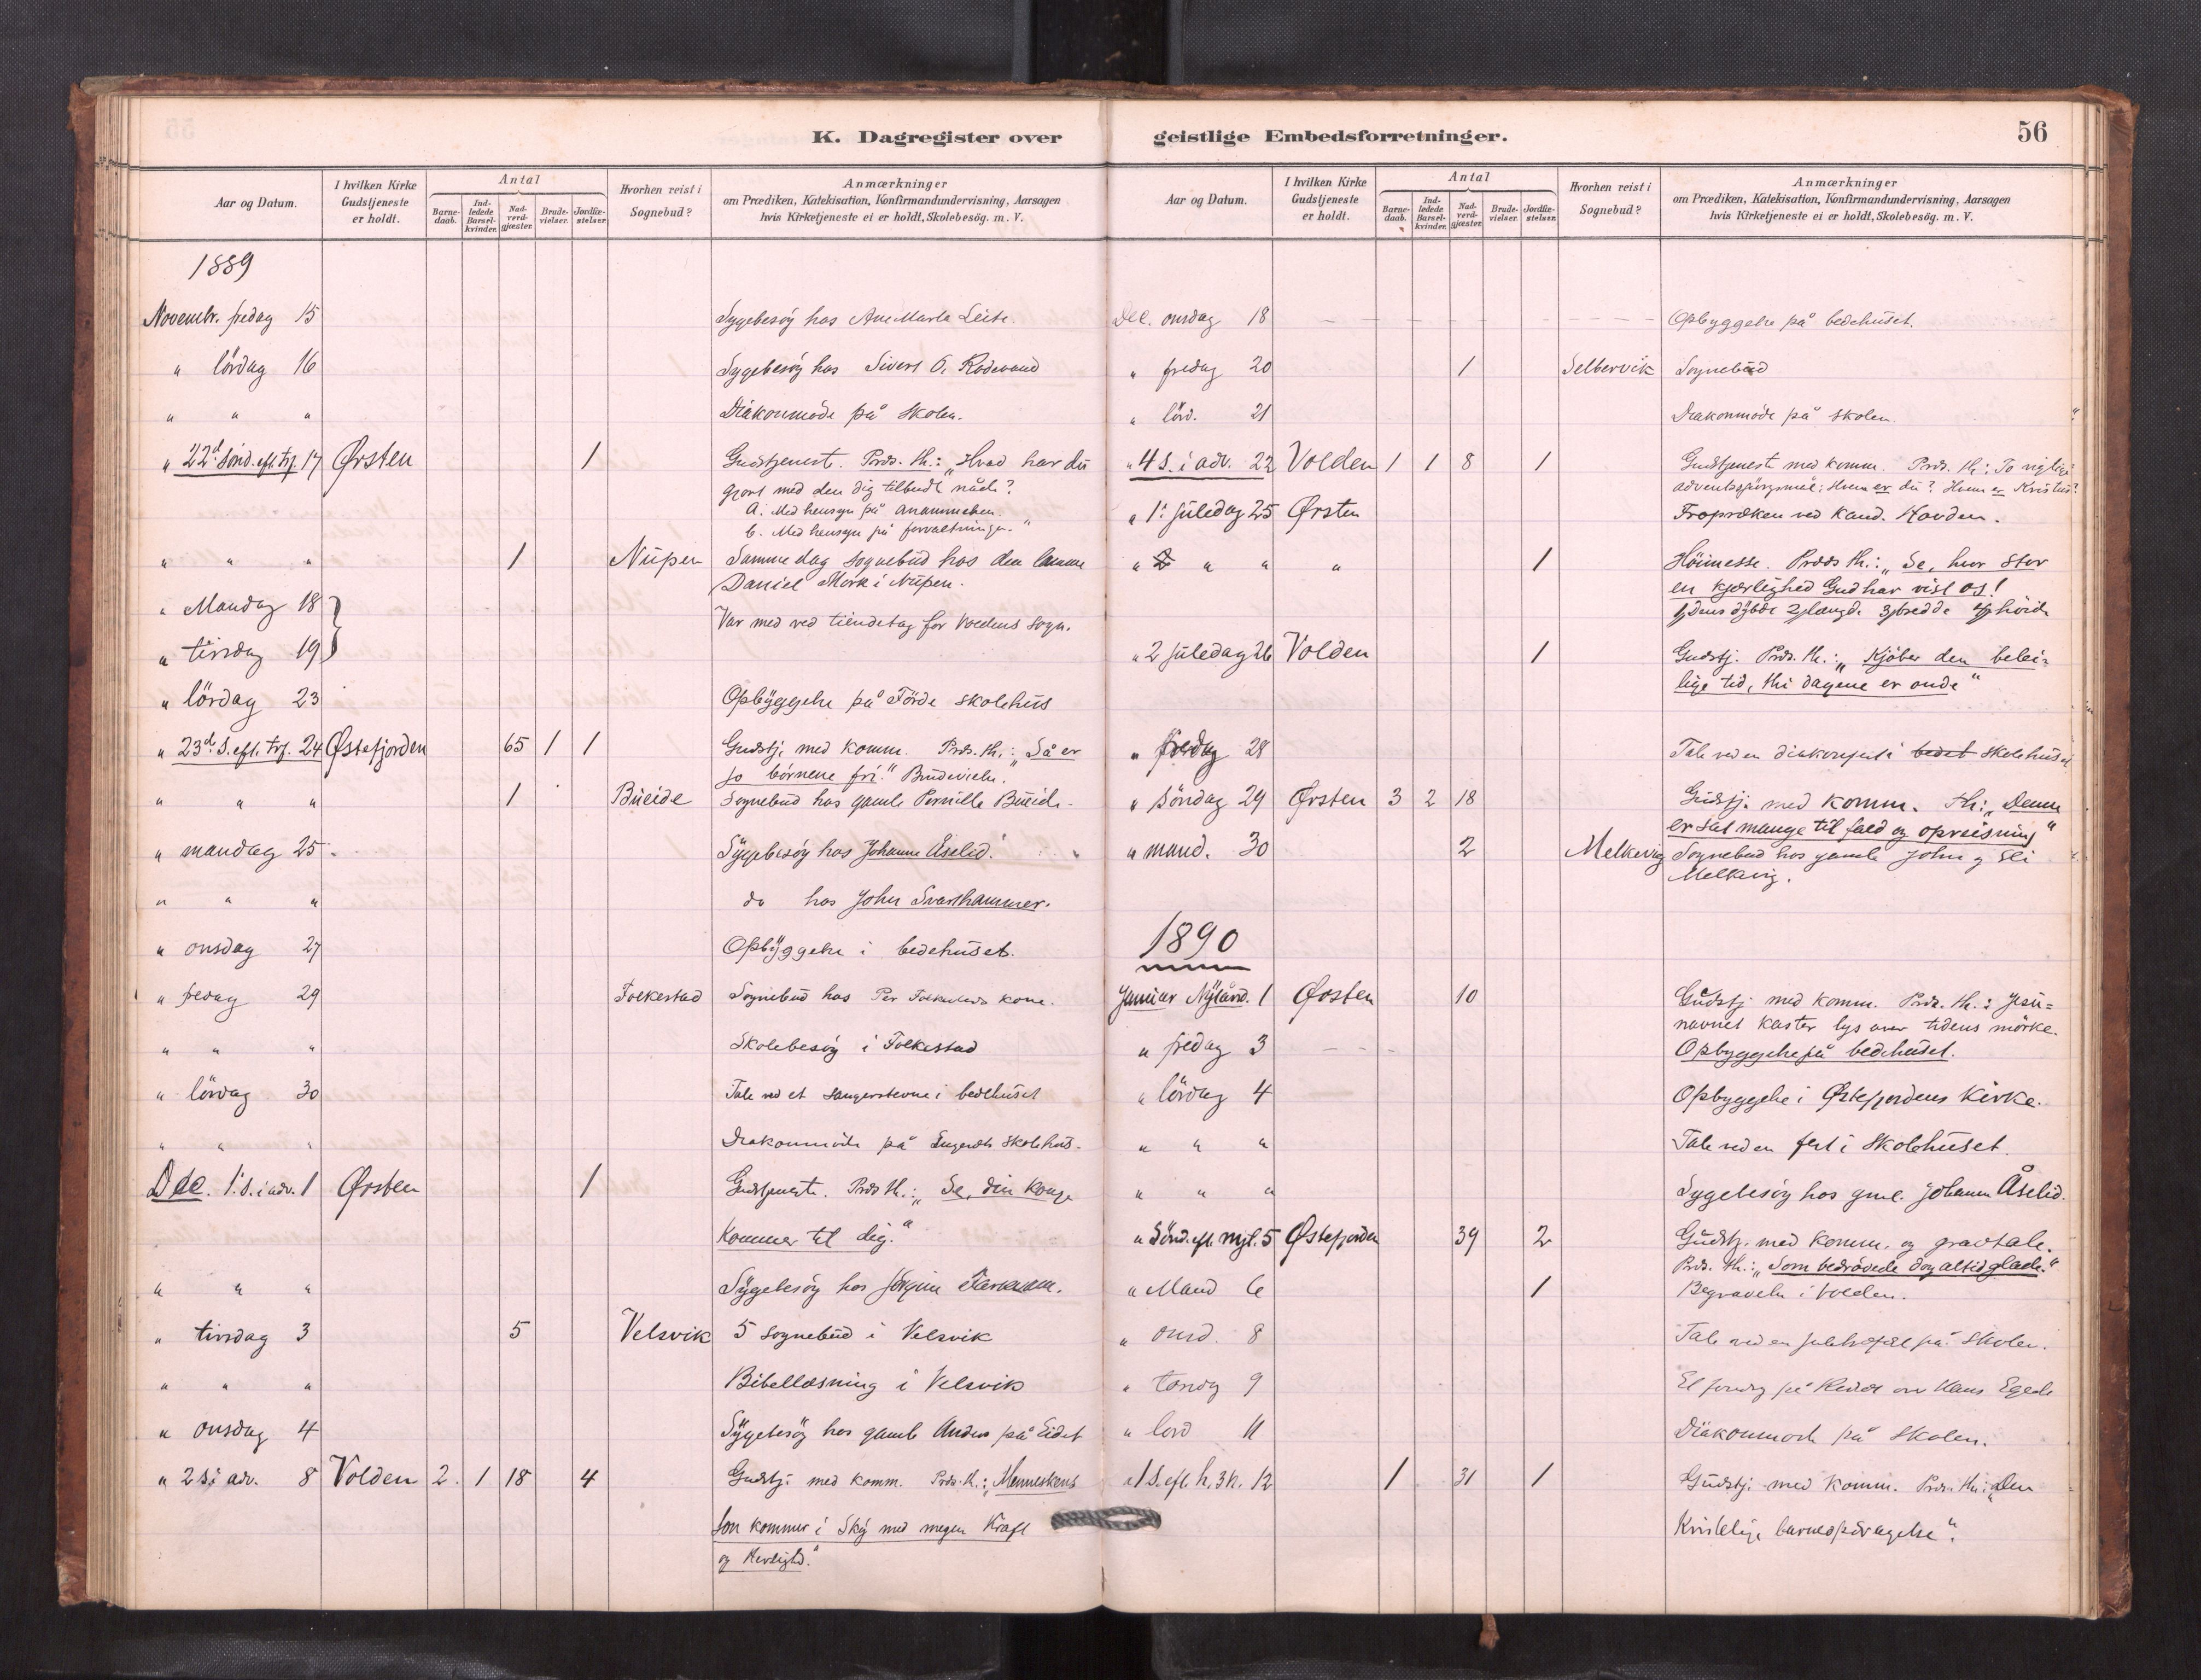 K. Dagregister over geistlige Embedsforretninger.
56
Aar og Datum.
I hvilken Kirke Gudstjeneste er holdt.
Antal
Barne-daab.
Ind-ledede Barsel-kvinder.
Nad-verd-gjæster.
Brude-vielser.
Jordfæ-stelser.
Hvorhen reist i Sognebud?
Anmærkninger
om Prædiken, Katekisation, Konfirmandundervisning, Aarsagen
hvis Kirketjeneste ei er holdt, Skolebesög. m. V.
1889
Novembr. fredag 15 Sygebesög hos Ane Marta Leite.
" lördag 16 Sygebesög hos Sivert O. Rödevand
" " " Diakonmöde på Skolen.
" 22d Sönd. eft. trf. 17 Ørsten 1 Gudstjenest. Prds. th.: "Hvad har du
gjort med den dig tilbudt nåde?
a. Med hensyn på anammelsen.
b. Med hensyn på forvaltningen."
" " " 1 Nupen Samme dag sognebud hos den lamme
Daniel Mork i Nupen.
" Mandag 18
Var med ved tiendetag for Voldens sogn.
" tirsdag 19
" lördag 23 Opbyggelse på Förde skolehus
" 23d. S. eft. trf. 24 Østefjorden 65 1 1 Gudstj. med komm. Prds. th.: "Så er
jo börnene fri." Brudevielse.
" " " 1 Bueide Sognebud hos gamle Pernille Bueide.
" mandag 25 Sygebesög hos Johanne Åselid.
" " " do hos John Svarthammer.
" onsdag 27 Opbyggelse i bedehuset.
" fredag 29 Folkestad Sognebud hos Per Folkestads kone.
" " " Skolebesög i Folkestad
" lördag 30 Tale ved et sangerstevne i bedehuset
" " " Diakonmöde på skolehus.
Dec. 1. s. i adv. 1 Ørsten 1 Gudstjeneste. Prds th.: "Se, din Konge
kommer til dig."
" " " Sygebesög hos
" tirsdag 3 5 Velsvik 5 sognebud i Velsvik
" " " Bibellæsning i Velsvik
" onsdag 4 Sygebesög hos gamle Anders på Eidet
" 2 S. i adv. 8 Volden 2 1 18 4 Gudstj. med komm. Prds. th.: "Menneskens
sön kommer i Sky med megen Kraft
og Herlighd."
Aar og Datum.
I hvilken Kirke Gudstjeneste er holdt.
Antal
Barne-daab.
Ind-ledede Barsel-kvinder.
Nad-verd-gjæster.
Brude-vielser.
Jordfæ-stelser.
Hvorhen reist i Sognebud?
Anmærkninger
om Prædiken, Katekisation, Konfirmandundervisning, Aarsagen
hvis Kirketjeneste ei er holdt, Skolebesög. m. V.
Dec. onsdag 18 Opbyggelse på bedehuset.
" fredag 20 1 Selbervik Sognebud
" lörd. 21 Diakonmöde på skolen
" 4 S. i adv. 22 Volden 1 1 8 1 Gudstjeneste med komm. Prds. th.: To vigtige
adventsspörgsmål: Hvem er du? Hvem er Kristus?
" 1. juledag 25 Ørsten Fropræken ved kand. Hovden.
" " " " 1 Höimesse. Prds th.: "Se, hvor stor
en kjærlighed Gud har vist os!
1) dens dybde 2) længde 3) bredde 4) höide
" 2 juledag 26 Volden 1 Gudstj. Prds. th.: "Kjöber den belei=
lige tid, thi dagene er onde"
" 28 Tale ved en diakonfest i bedet skolehuset
" söndag 29 Ørsten 3 2 18 Gudstj. med komm. th.: "Denne
er sat mange til fald og opreisning"
" mand. 30 2 Melkevig Sognebud hos gamle John og
Melkevig.
1890
Januar Nytårsd. 1 Ørsten 10 Gudstj. med komm. Prds. th.: Jesu=
navnet kaster lys over tidens mörke.
" fredag 3 Opbyggelse på bedehuset.
" lördag 4 Opbyggelse i Østefjordens Kirke.
" " " Tale ved en fest i Skolehuset.
" " " Sygebesög hos gml. Johanne Åselid.
" Sönd. eft. nytår 5 Østefjorden 39 2 Gudstj. med komm. og gravtale.
Prds. th.: "Som bedrövede dog altid glade."
" Mand 6 1 Begravelse i Volden.
" onsd. 8 Tale ved en på skolen.
" torsdg 9 Et foredrag på om Hans Egede
" lörd 11 Diakonmöde på Skolen.
" 1 S. eft. h. 3 k. 12 1 31 1 Gudstj. med komm. Prds. th.: "Den
Kristelige barneopdragelse".